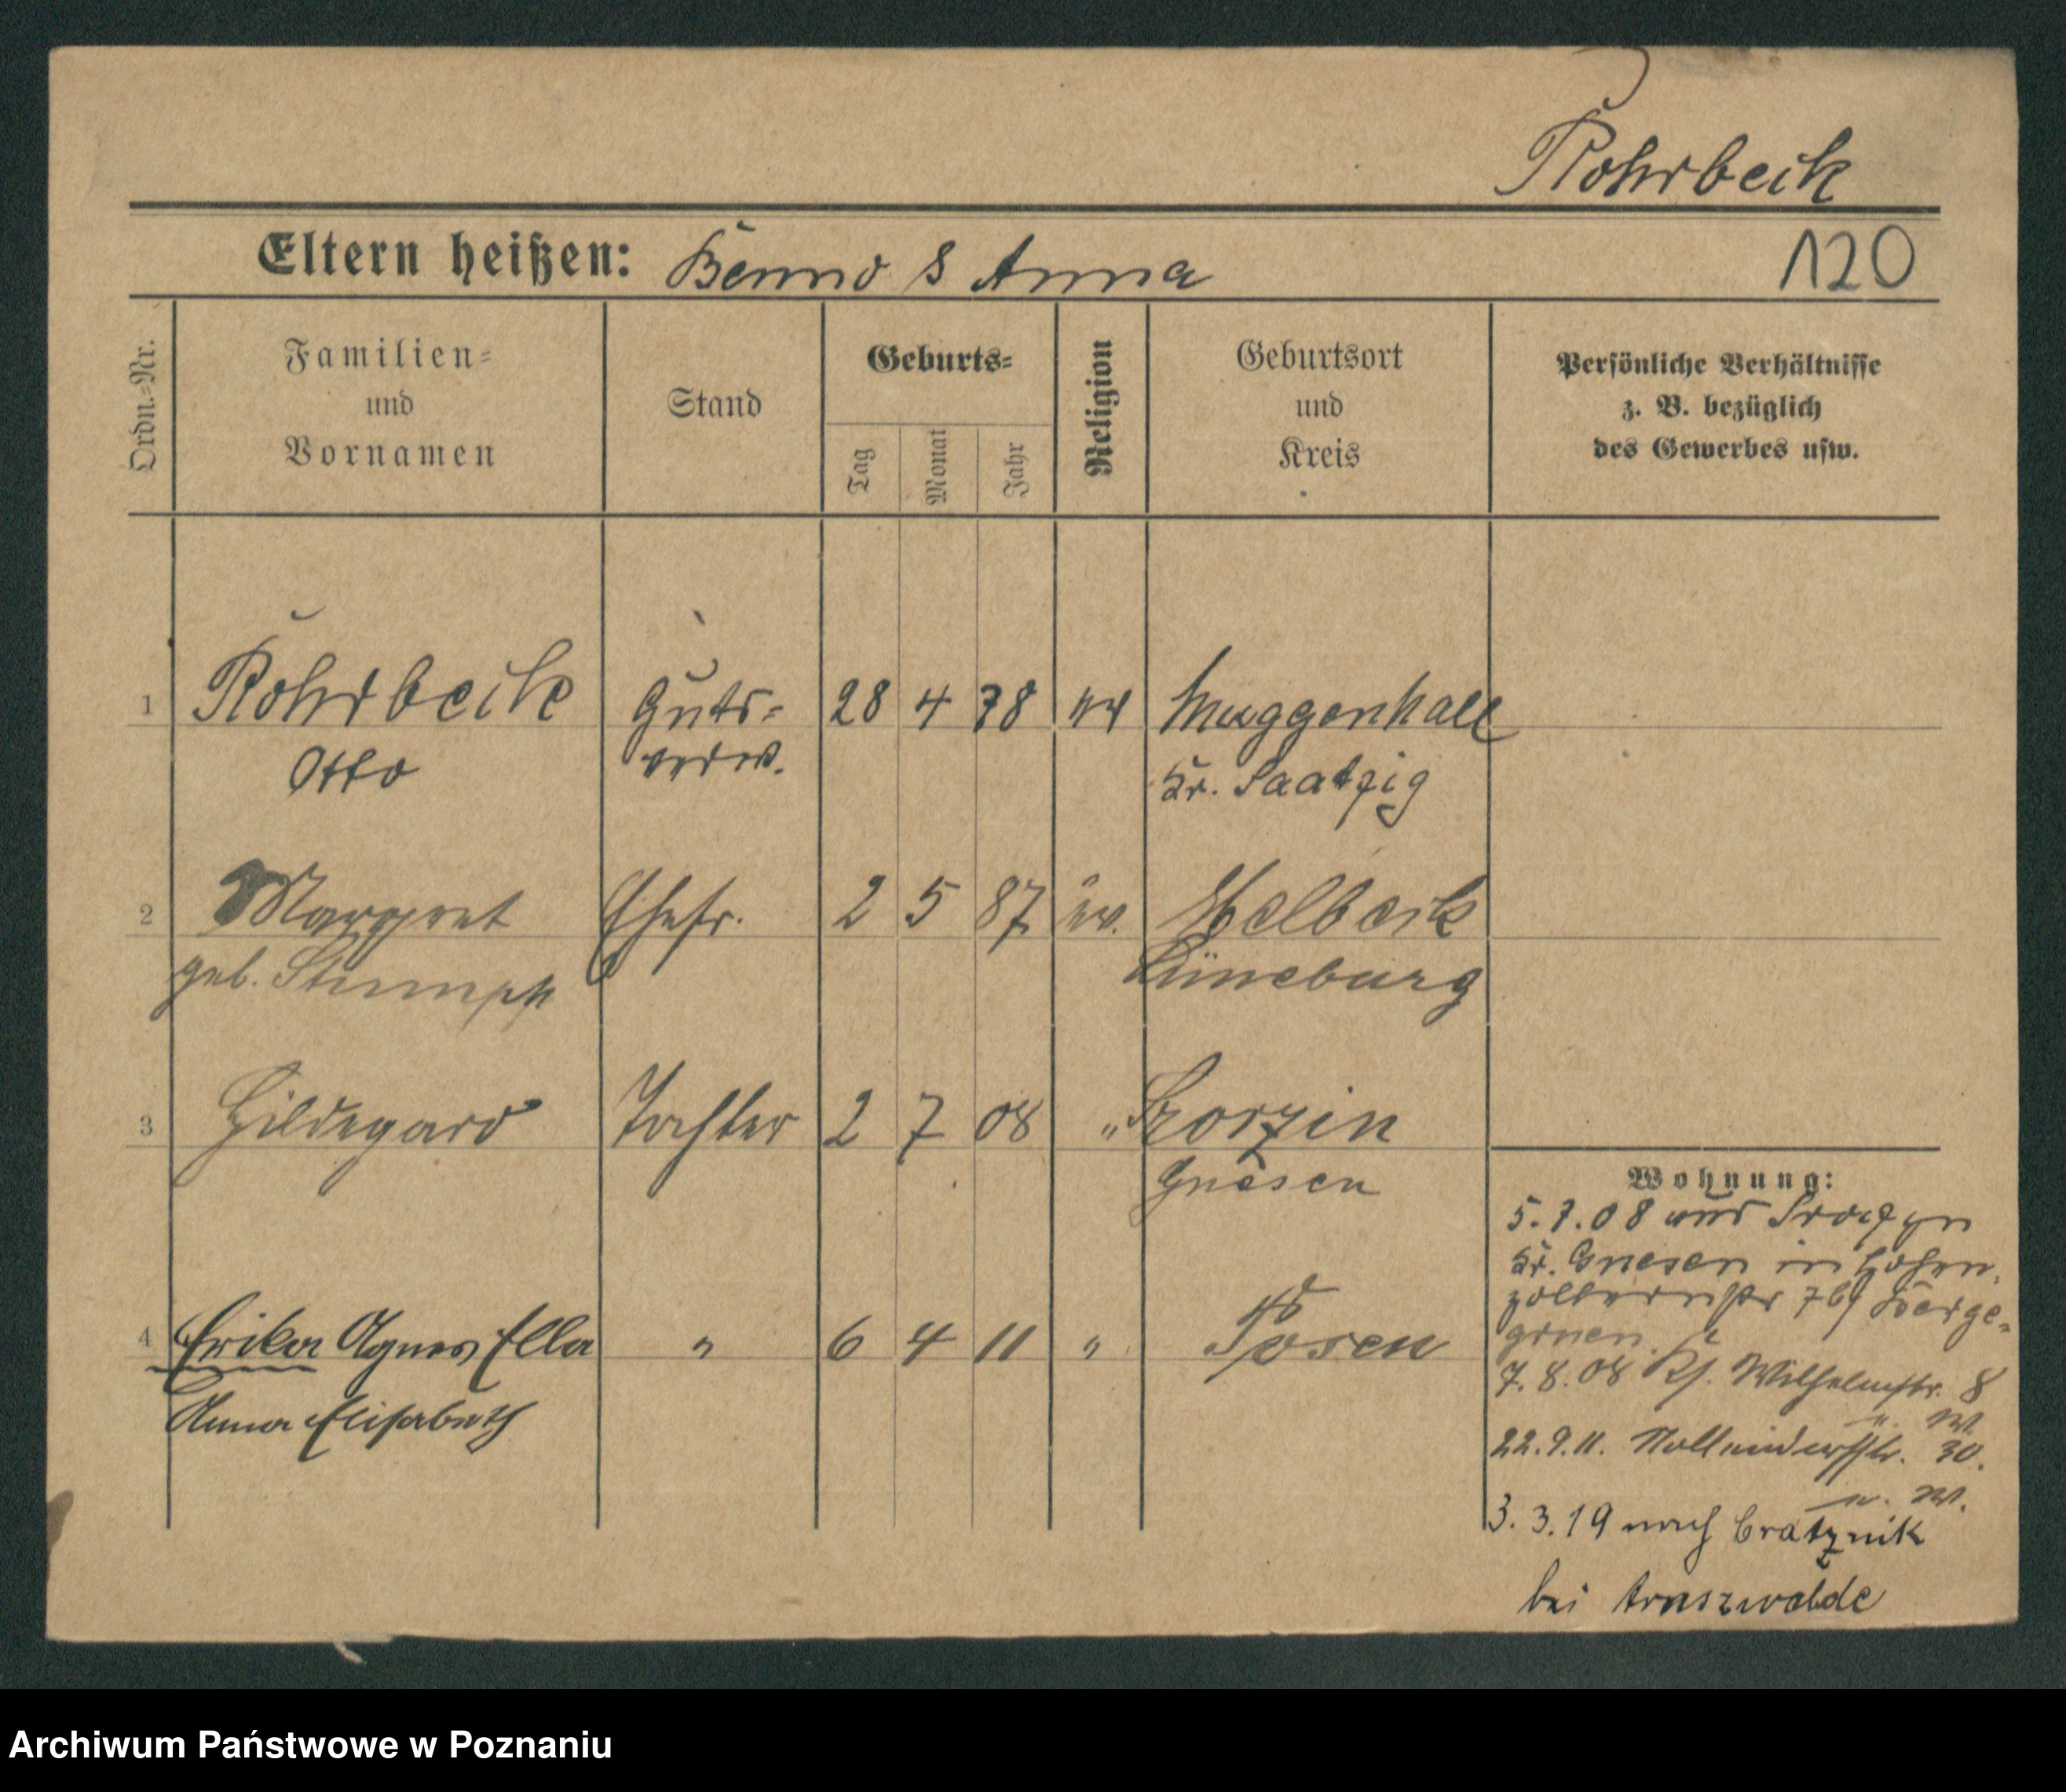 Rohrbeck
Eltern heißen: Benno & Anna
120
Ordn.=Nr.
Familien=
und
Vornamen
Stand
Geburts=
Tag
Monat
Jahr
Religion
Geburtsort
und
Kreis
Persönliche Verhältnisse
z. B. bezüglich
des Gewerbes usw.
1 Rohrbeck Guts= 28 4 78 ev Muggenhall
Otto verw. Kr. Saatzig
2 Margret Ehefr. 2 5 87 ev. Melbeck
geb. Stumpp Lüneburg
3 Hildegard Tochter 2 7 08 "
Gnesen
4 Erika Agnes Ella " 6 4 11 " Posen
Anna Elisabeth
Wohnung:
5.7.08 aus
Kr. Gnesen in Hohen-
zollernstr 76
7.8.08 Wilhelmstr. 8
22.9.11. 30.
u. W.
3.3.19 nach Cratznik
bei Arnszwalde
Archiwum Państwowe w Poznaniu